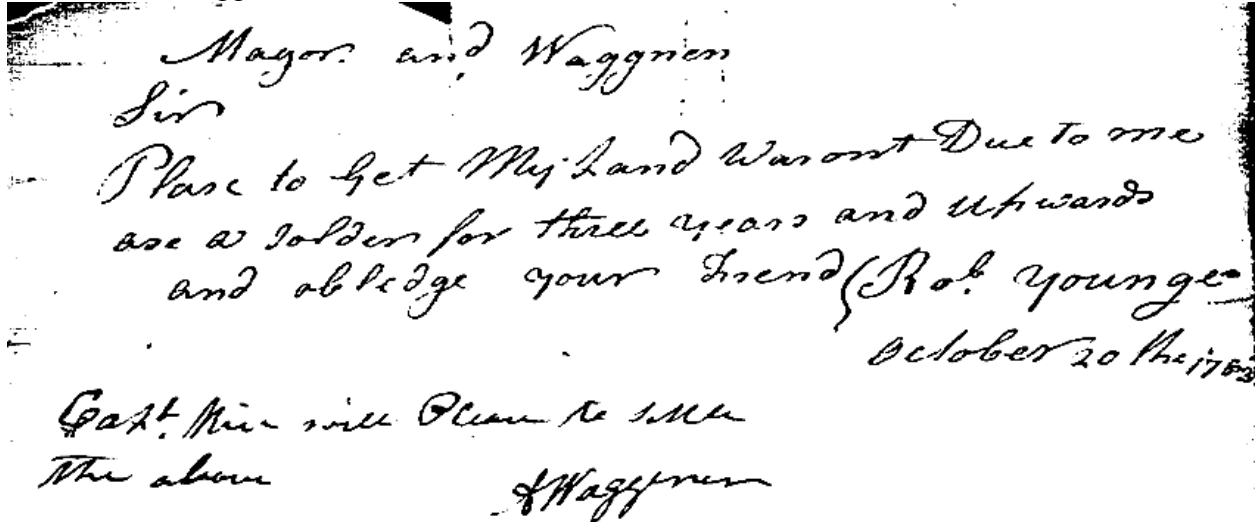 Mayor and Waggnen
Sir
Plase to Get My Land Waront Due to me
ase a Solder for three years and upwards
and obledge your Friend Rob. Younge
October 20 the 1783
Capt. will Please to settle
the above AWaggener